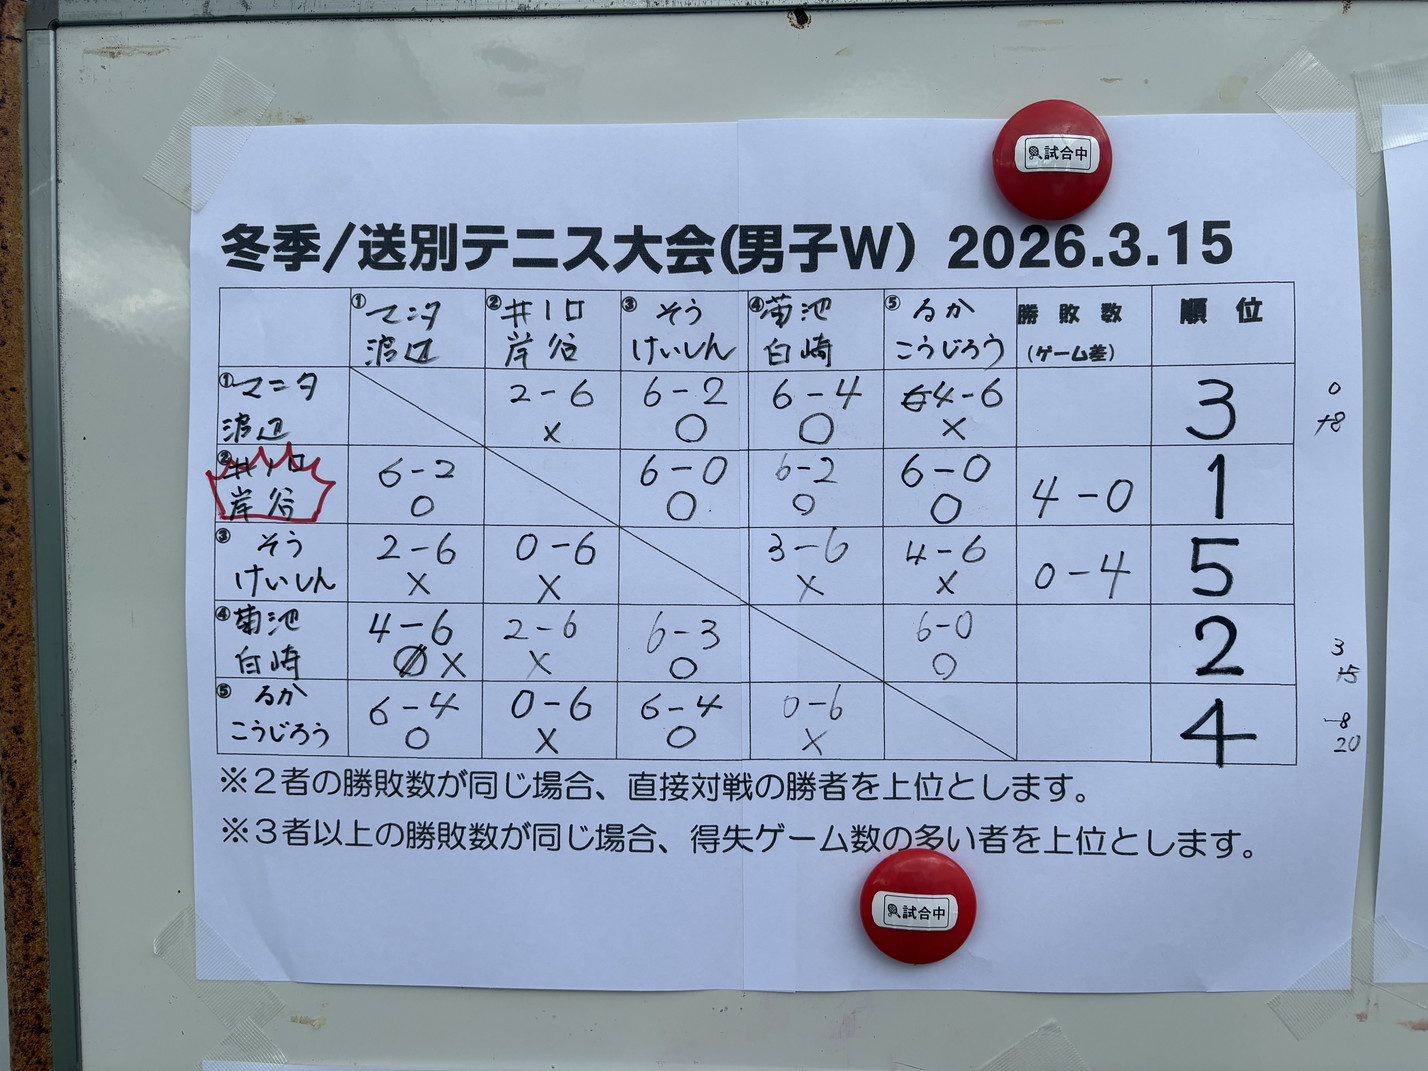 試合中
冬季/送別テニス大会(男子W) 2026.3.15
① マニタ 渡辺 ② 井口 岸谷 ③ そう けいしん ④ 菊池 白崎 ⑤ るか こうじろう 勝敗数 (ゲーム差) 順位
① マニタ 渡辺 2-6 × 6-2 ○ 6-4 ○ 4-6 × 3 0 +8
② 井口 岸谷 6-2 ○ 6-0 ○ 6-2 ○ 6-0 ○ 4-0 1
③ そう けいしん 2-6 × 0-6 × 3-6 × 4-6 × 0-4 5
④ 菊池 白崎 4-6 × 2-6 × 6-3 ○ 6-0 ○ 2 3 15
⑤ るか こうじろう 6-4 ○ 0-6 × 6-4 ○ 0-6 × 4 -8 20
※2者の勝敗数が同じ場合、直接対戦の勝者を上位とします。
※3者以上の勝敗数が同じ場合、得失ゲーム数の多い者を上位とします。
試合中